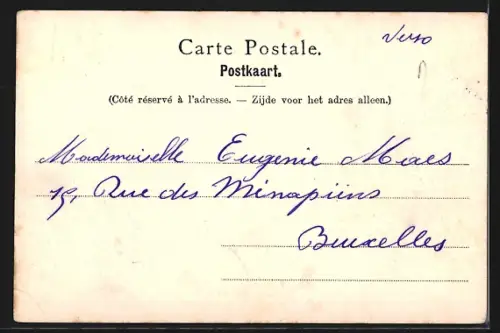 Verso
Carte Postale.
Postkaart.
(Côté réservé à l'adresse. — Zijde voor het adres alleen.)
Mademoiselle Eugenie Maes
19, Rue des Ménapiins
Bruxelles